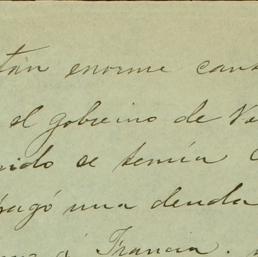 tan enorme cant
el gobierno de Ve
se temía
pagó una deuda
á Francia.